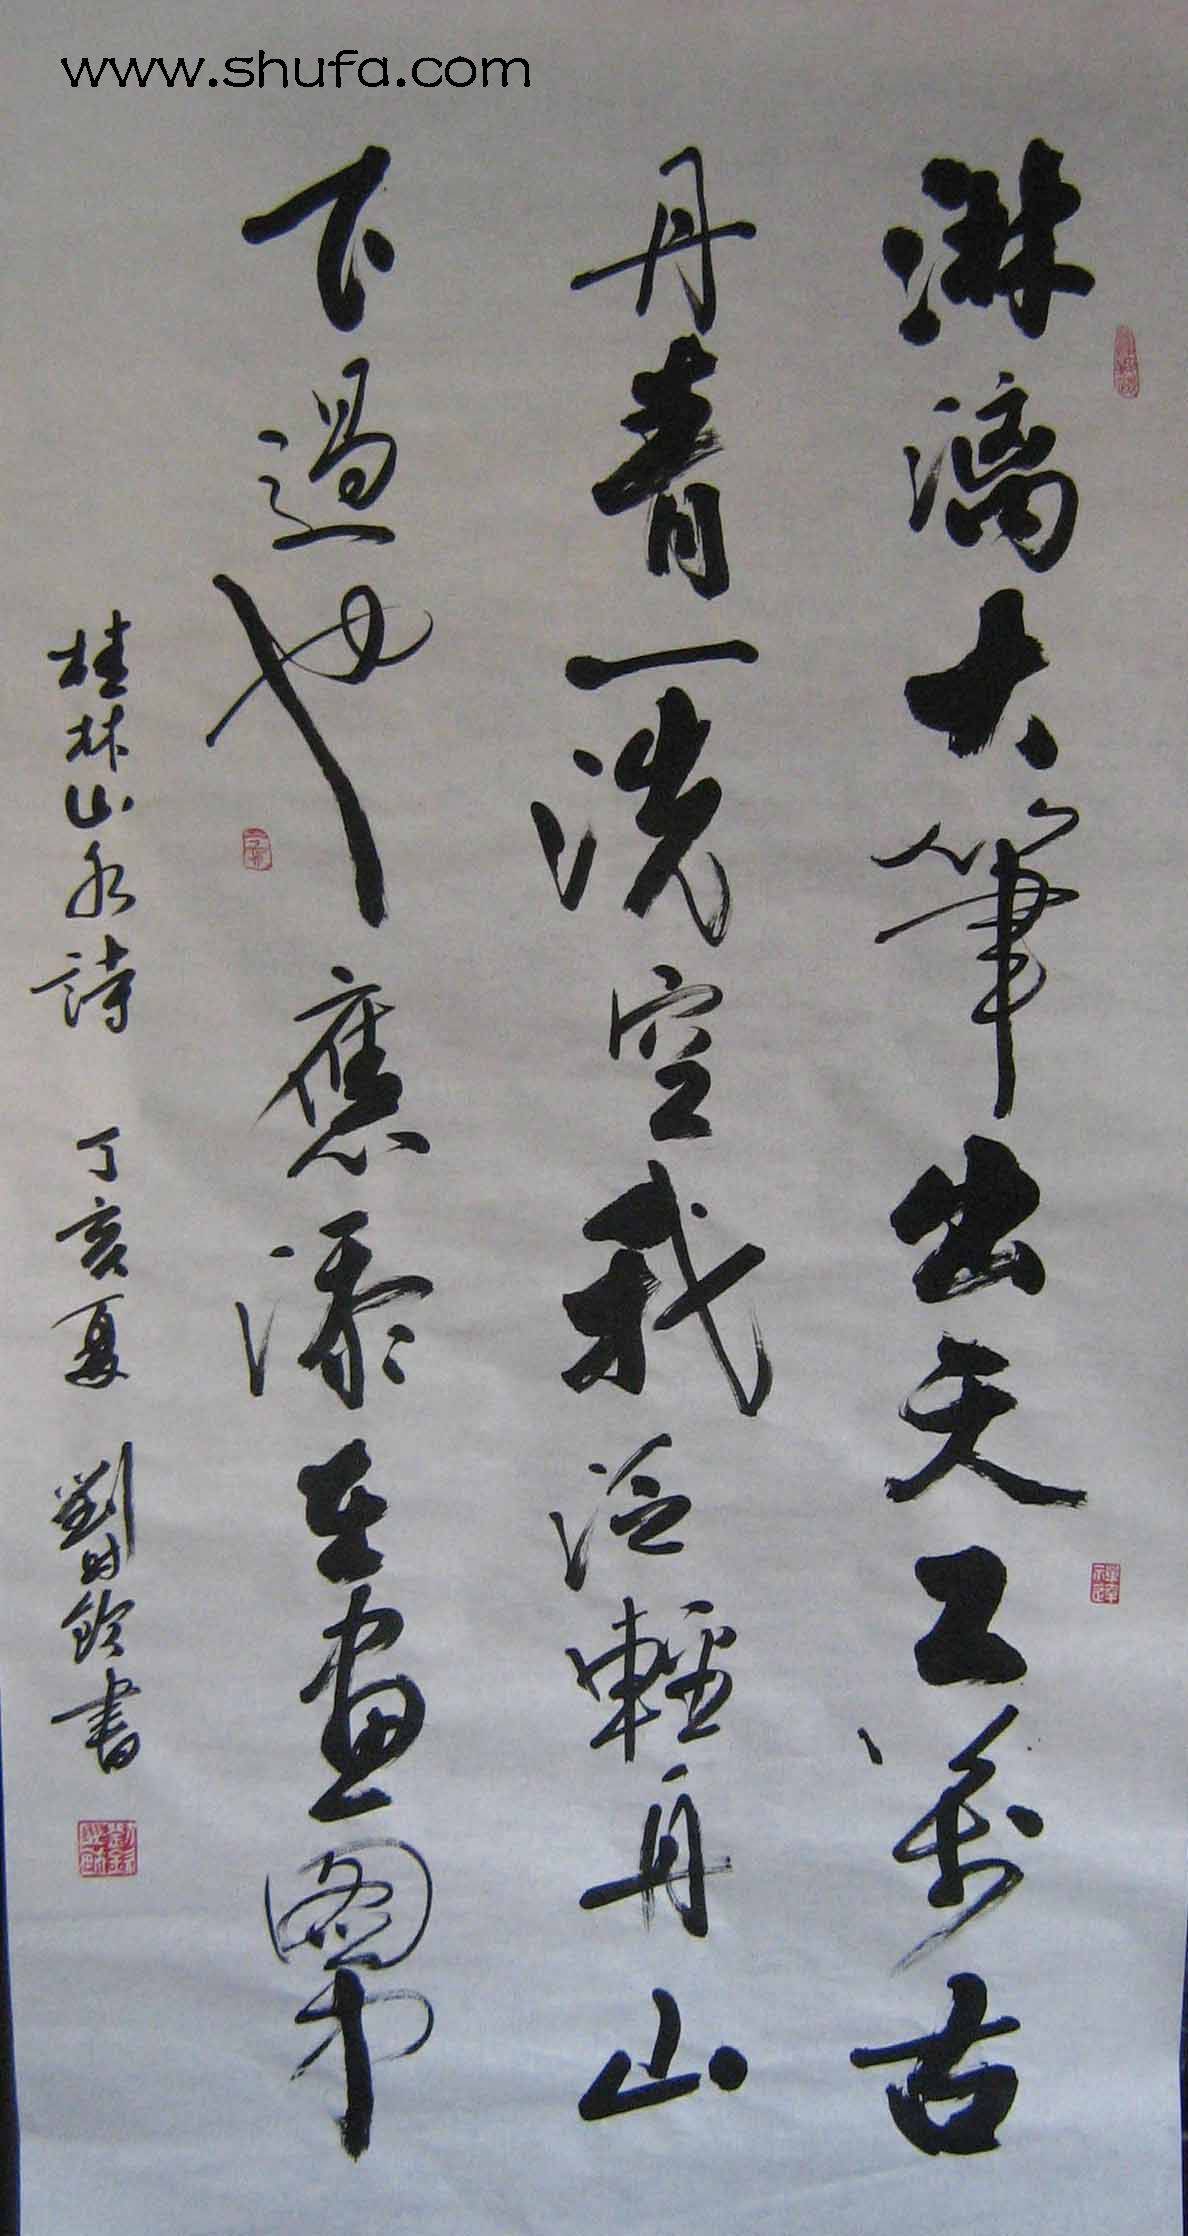 www.shufa.com
淋漓大筆出天工萬古
丹青一洗空我泛輕舟山
下過也應添在畫圖中
桂林山水詩 丁亥夏 劉時鈴書